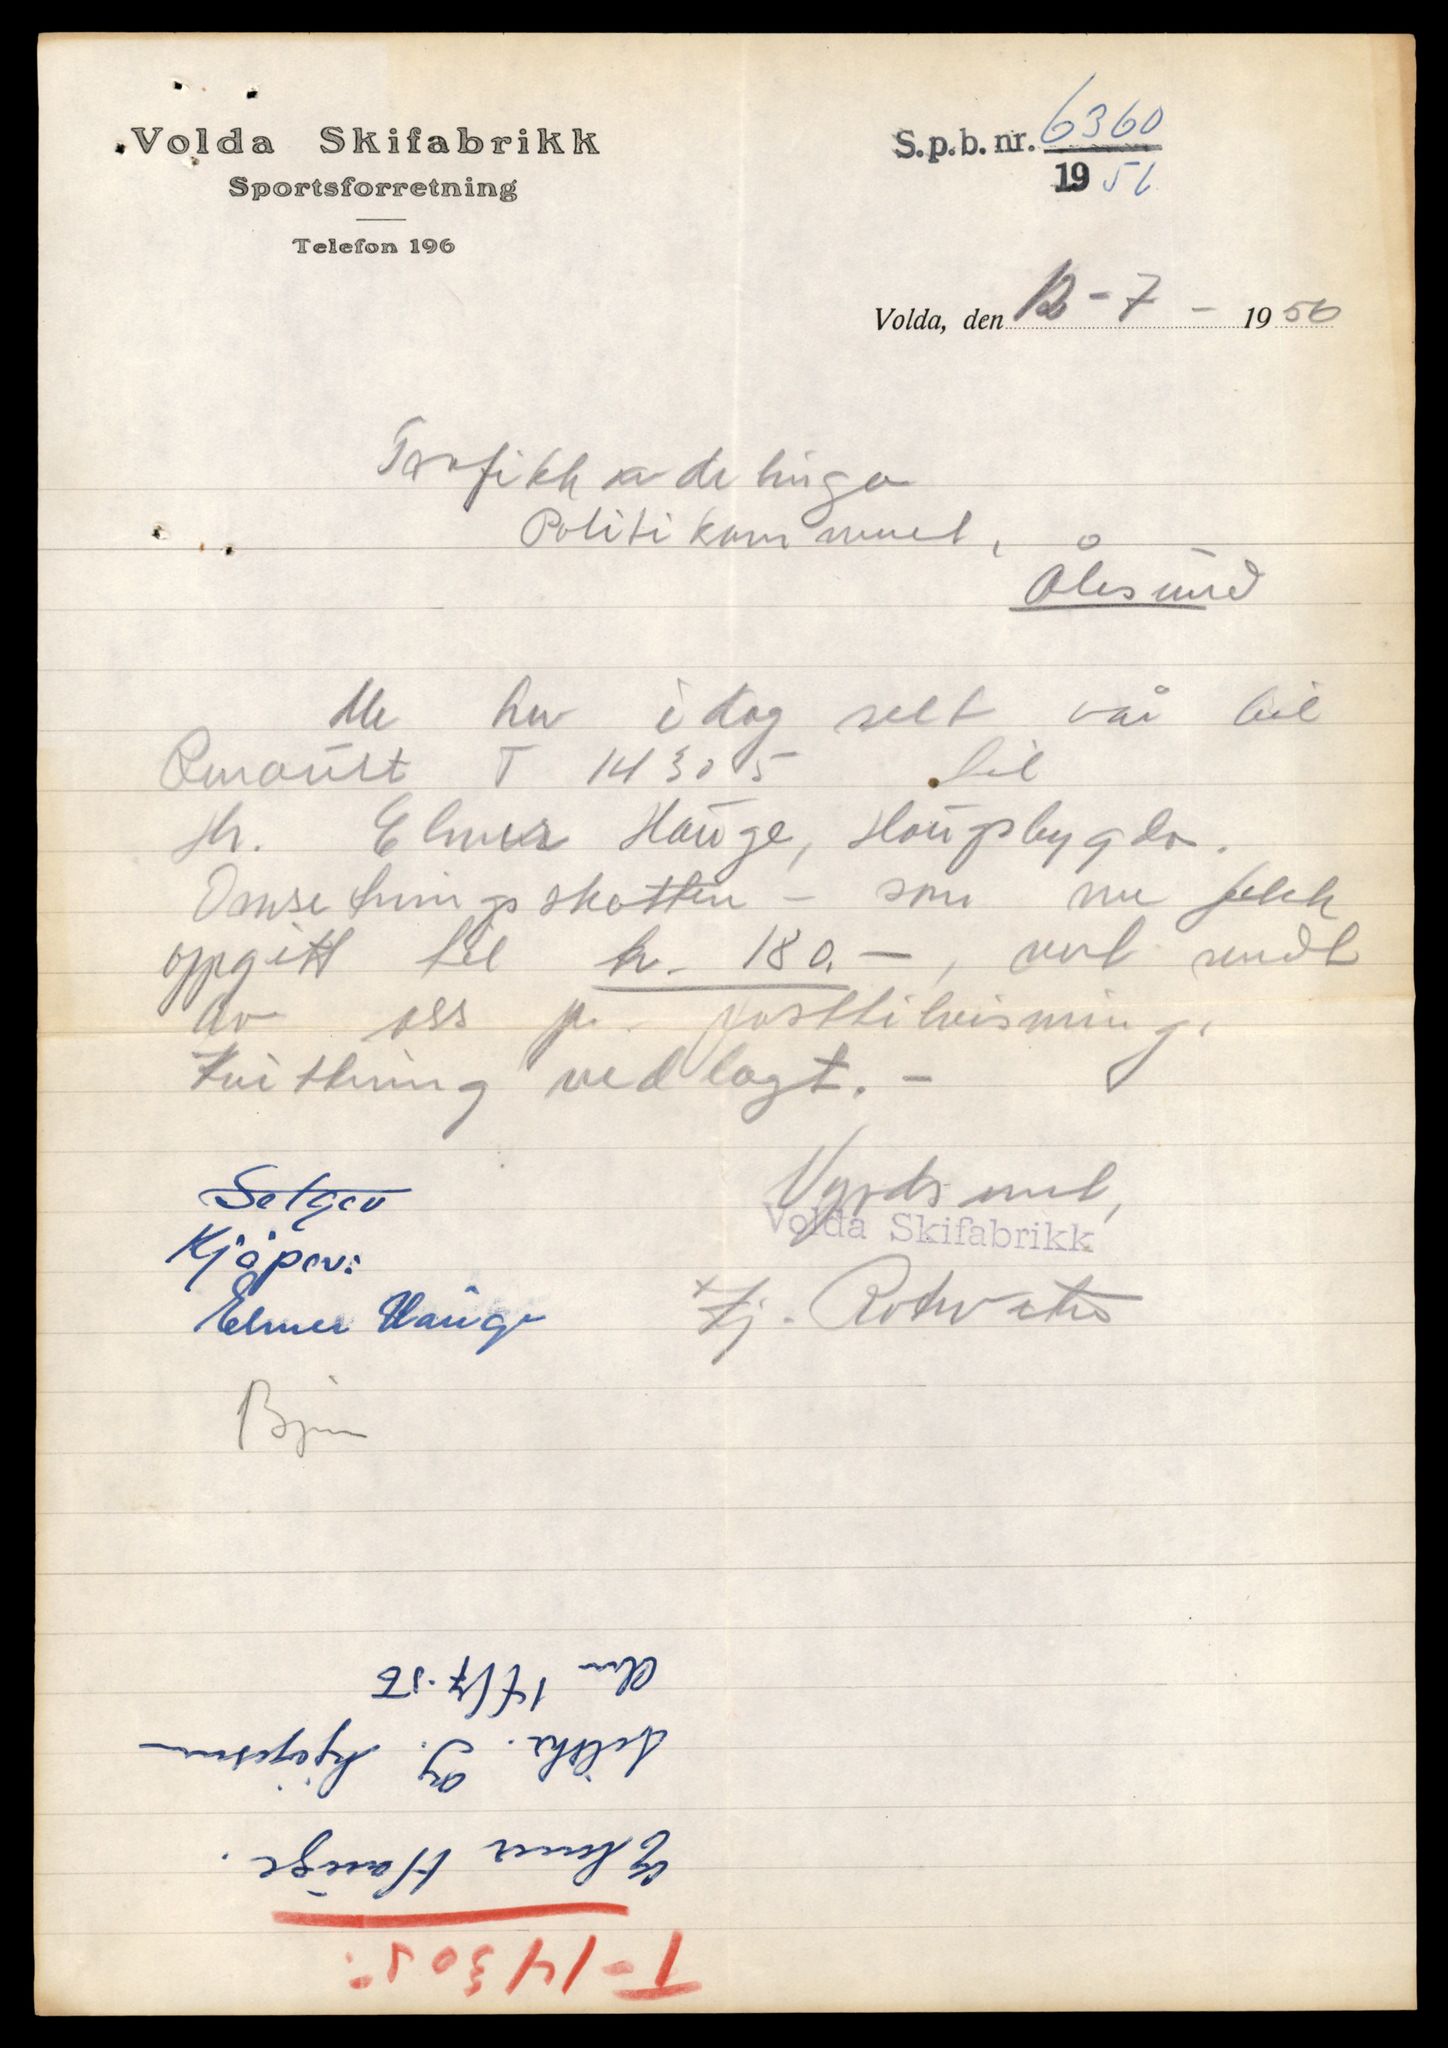 Volda Skifabrikk
Sportsforretning
Telefon 196
S.p.b. nr. 6360
19 56
Volda, den 12 - 7 - 1956
Trafikkavdelinga
Politikammeret,
Ålesund
Me har idag selt vår bil
Renault T 14305 til
Hr. Elmer Hauge, Haugsbygda.
Omsetningsskatten - som me fekk
oppgitt til kr. 180.-, vert sendt
av oss pr. posttilvisning.
Kvittering vedlagt. -
Selger
Kjöper:
Elmer Hauge
Vyrdsamt,
Volda Skifabrikk
Rotvatn
T-14305.
Elmer Hauge.
og
17/7-56